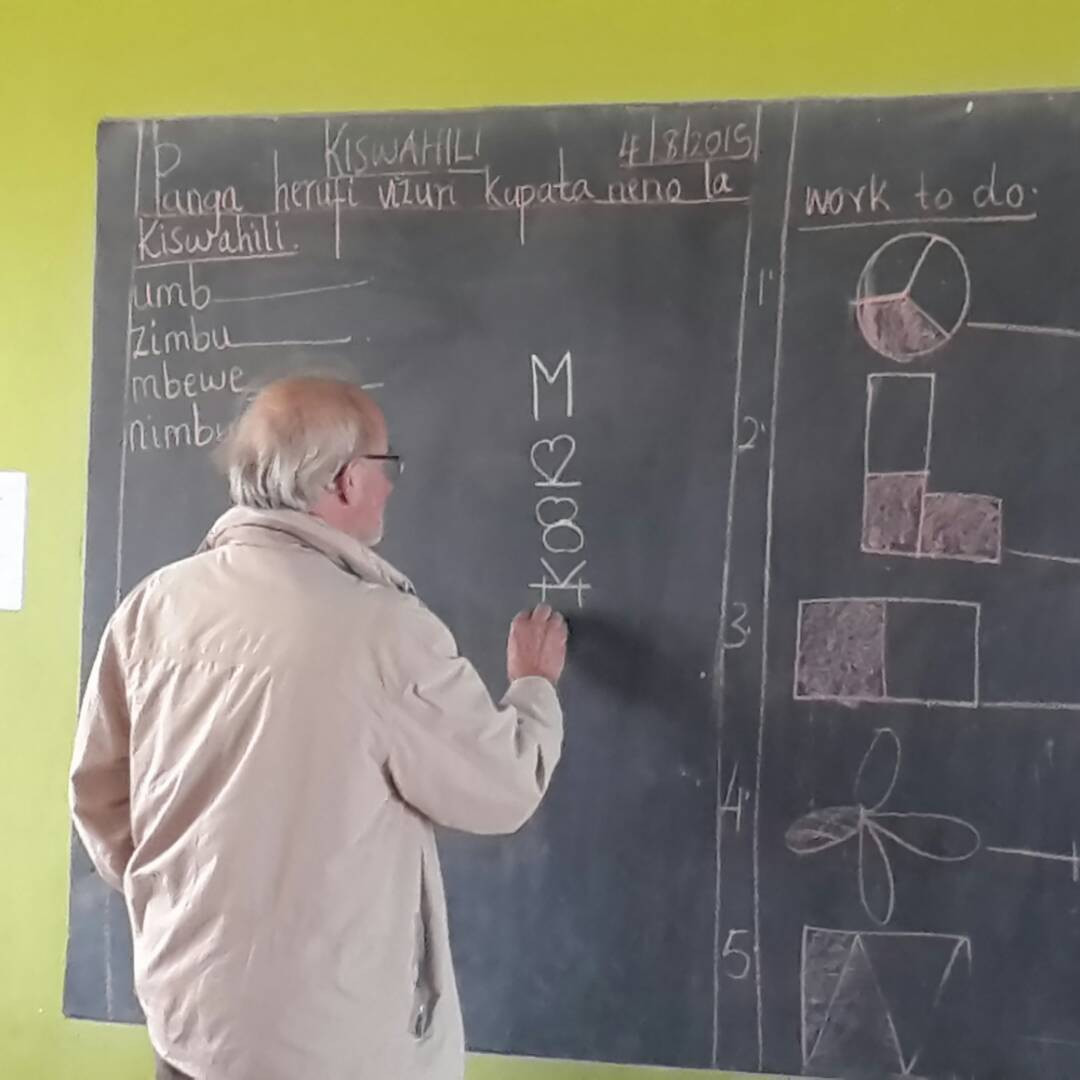 KISWAHILI 4/8/2015
Panga herufi vizuri kupata neno la
Kiswahili.
umb
zimbu
mbewe
nimbu
M
work to do.
1.
2.
3.
4.
5